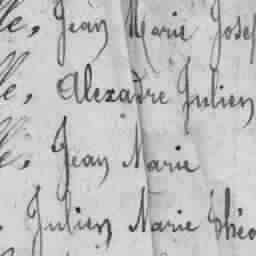 lle, Jean Marie Josep
lle, Alexadre Julien
lle, Jean Marie
Julien Marie Théo